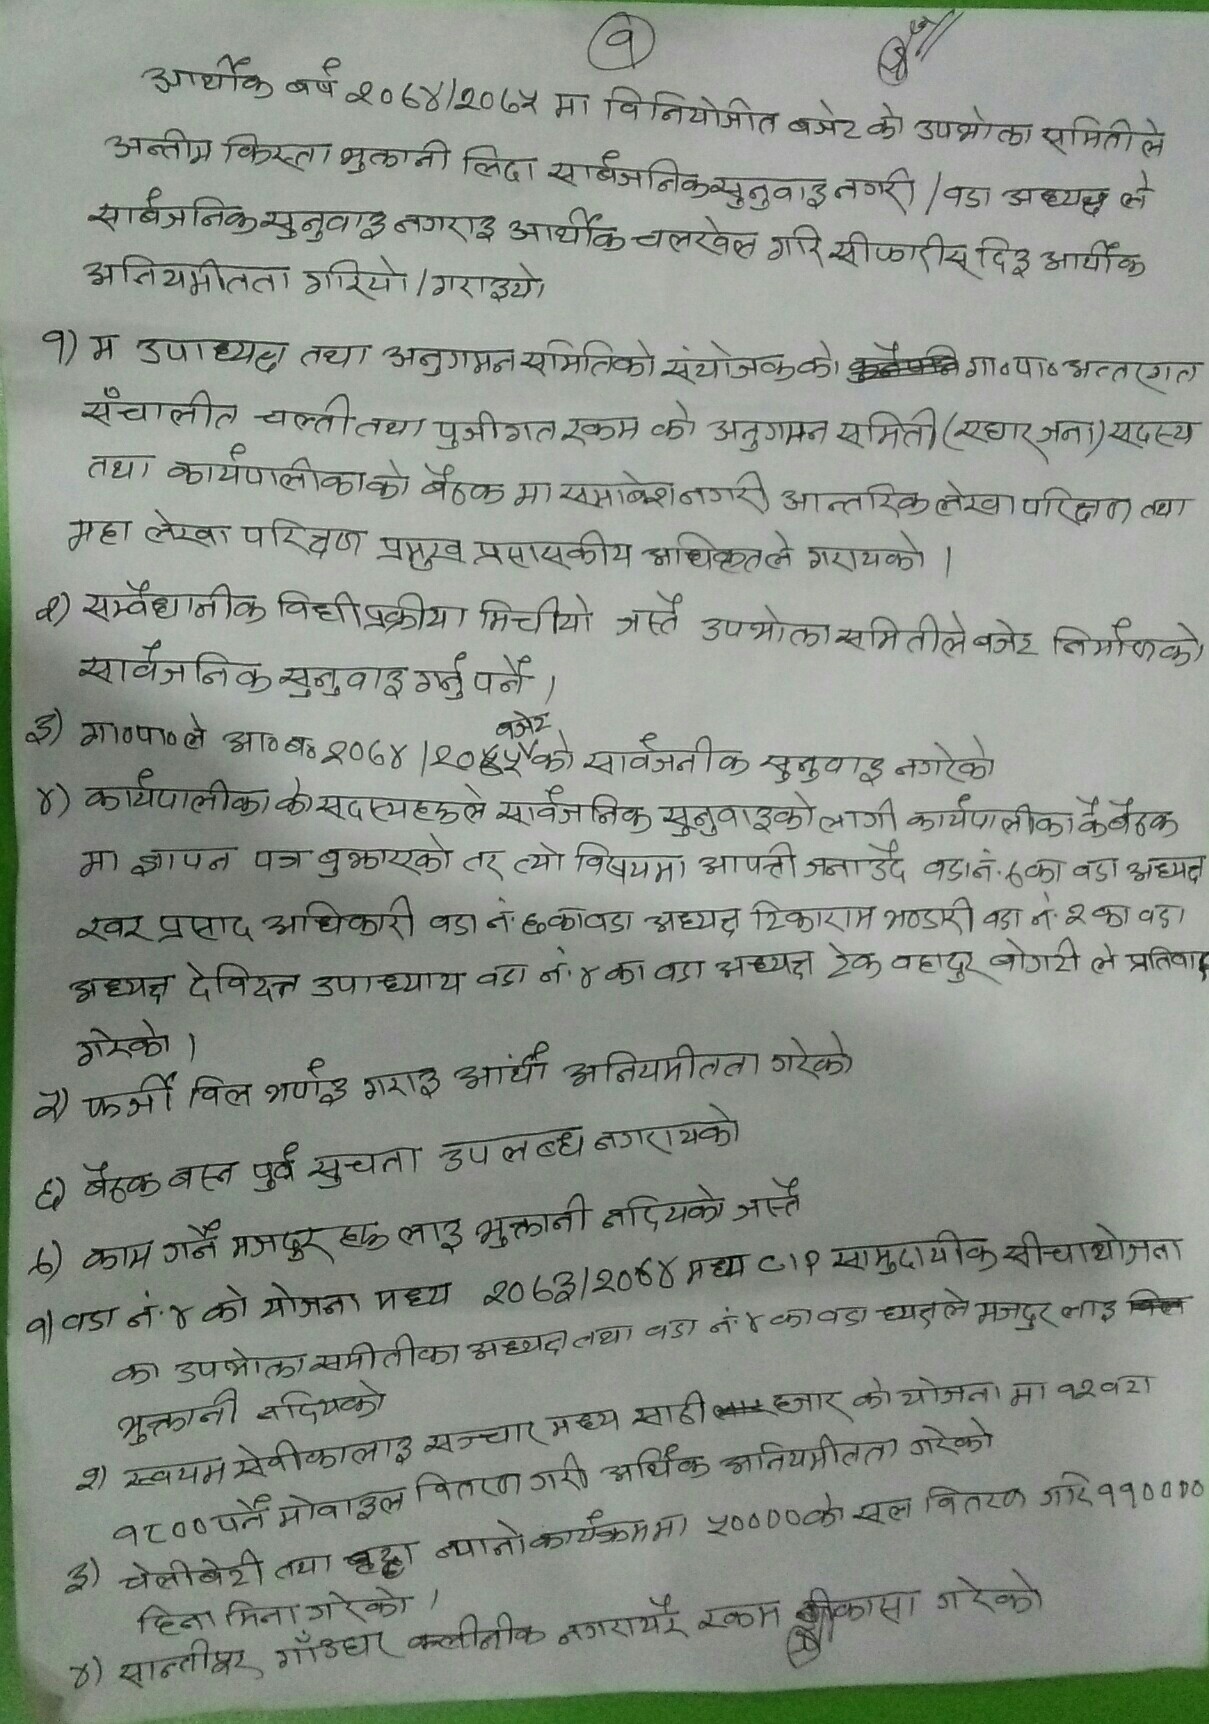 १
आर्थीक बर्ष २०७४/२०७५ मा विनियोजीत बजेट को उपभोक्ता समितीले
अन्तीम किस्ता भुक्तानी लिदा सार्बजनिक सुनुवाइ नगरी /वडा अध्यक्ष ले
सार्बजनिक सुनुवाइ नगराइ आर्थीक चलखेल गरि सीफारीस् दिइ आर्थीक
अनियमीतता गरियो/गराइयो
१) म उपाध्यक्ष तथा अनुगमन समितिको संयोजक को गा॰पा॰ अन्तरगत
सँचालीत चल्ती तथा पुजीगत रकम को अनुगमन समिती (रघार जना) सदस्य
तथा कार्यपालीकाको बैठक मा समाबेश नगरी आन्तरिक लेखा परिक्षण तथा
महा लेखा परिक्षण प्रमुख प्रसासकीय अधिकृतले गरायको ।
२) सम्बैधानीक विधी प्रक्रीया मिचीयो जस्तै उपभोक्ता समितीले बजेट निर्माणको
सार्वजनिक सुनुवाइ गर्नु पर्ने ।
३) गा॰पा॰ले आ॰ब॰ २०७४/२०७५ बजेट को सार्वजनीक सुनुवाइ नगरेको
४) कार्यपालीका के सदस्यहरुले सार्वजनिक सुनुवाइको लागी कार्यपालीका कै बैठक
मा ज्ञापन पत्र बुझाएको तर त्यो विषयमा आपत्ती जनाउँदै वडा नं. ७ का वडा अध्यक्ष
खर प्रसाद अधिकारी वडा नं. ६ का वडा अध्यक्ष टिकाराम भण्डारी वडा नं. २ का वडा
अध्यक्ष देविदत्त उपाध्याय वडा नं. ४ का वडा अध्यक्ष टेक वहादुर बोगटी ले प्रतिवाद
गरेको ।
५) फर्जी विल भर्पाइ गराइ आर्थी अनियमीतता गरेको
६) बैठक बस्न पुर्व सुचना उपलब्ध नगरायको
७) काम गर्ने मजदुर हरु लाइ भुक्तानी नदियको जस्तै
१) वडा नं. ४ को योजना मध्य २०७३/२०७४ मध्य CIP सामुदायीक सीचाइ योजना
का उपभोक्ता समीतीका अध्यक्ष तथा वडा नं. ४ का वडा ध्यक्षले मजदुर लाइ
भुक्तानी नदियको
२) स्वयम सेवीकालाइ सञ्चार मध्य साठी हजार को योजना मा १२ वटा
१८०० पर्ने मोवाइल वितरण गरी अर्थिक अनियमीतता गरेको
३) चेलीबेटी तथा न्यानो कार्यक्रममा ५०००० को सल वितरण गरि ११००००
हिना मिना गरेको ।
४) सान्तीपुर गाँउघर क्लीनीक नगरायरै रकम नीकासा गरेको